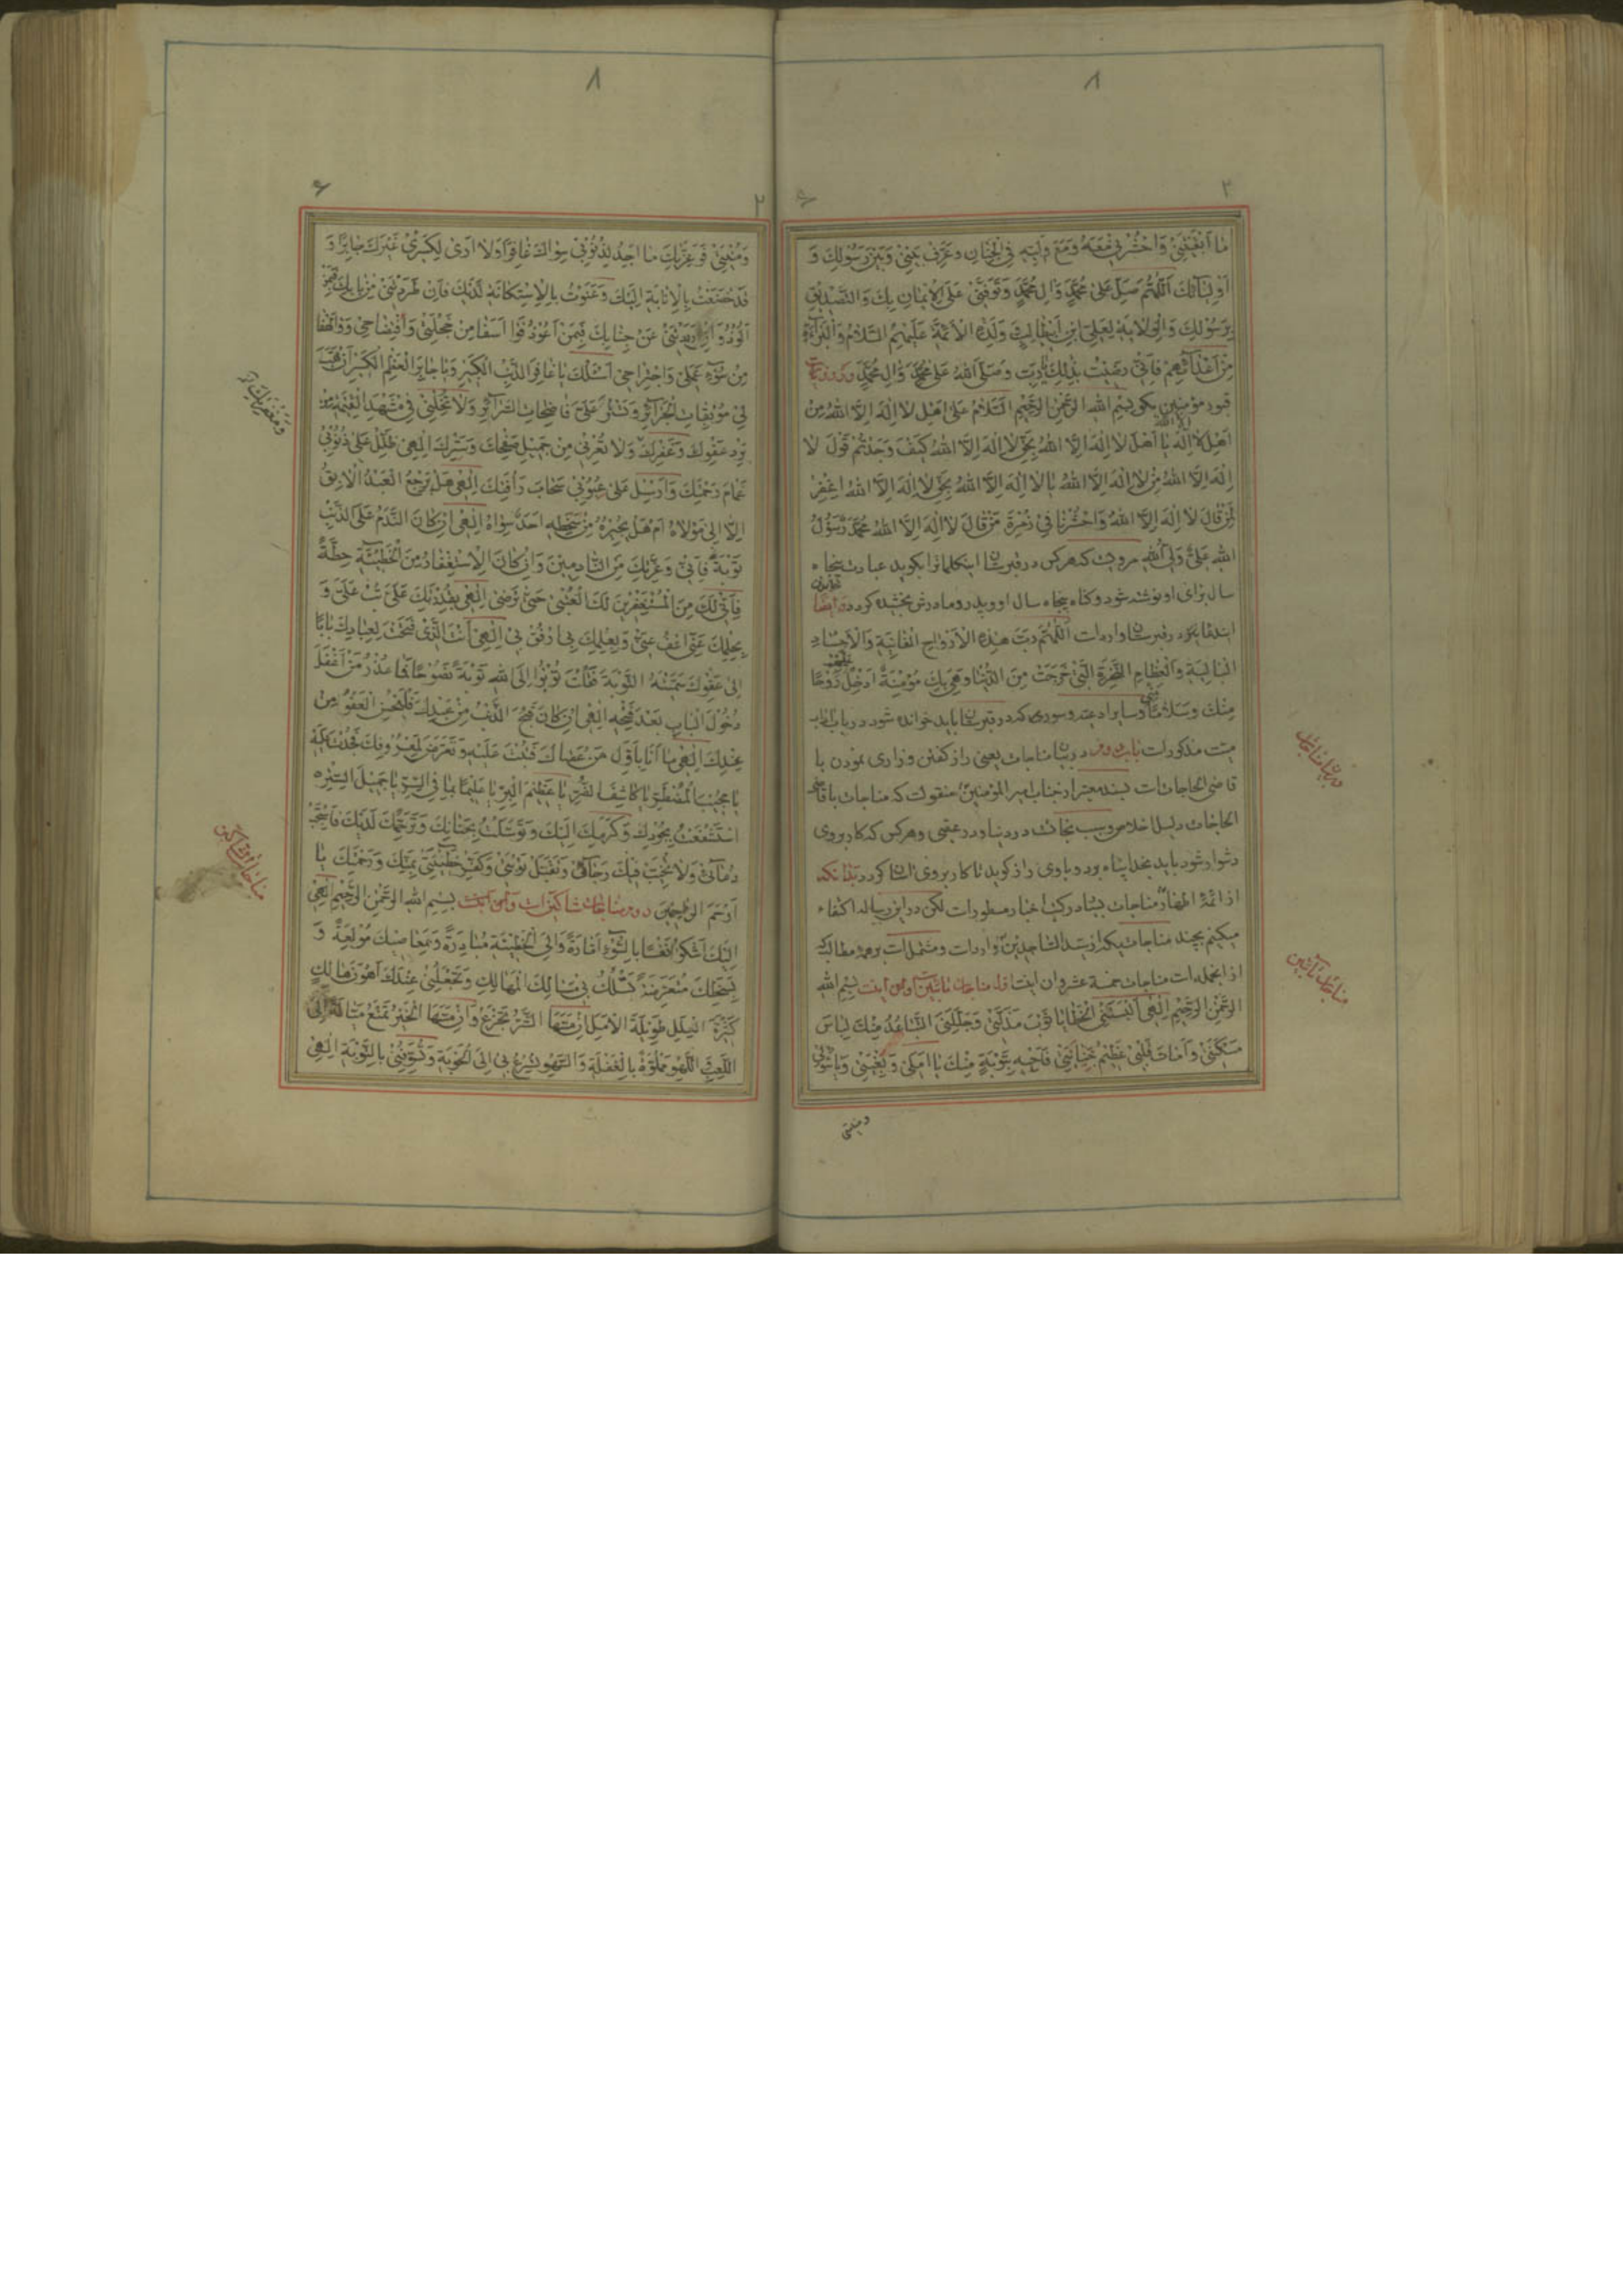 ما اَبْقَيْتَنِي وَاحْشُرْنِي مَعَهُ وَمَعَ وَلِيِّهِ فِي الْجِنَانِ وَعَرِّفْ بَيْنِي وَبَيْنَ رَسُولِكَ وَ
اَوْلِيَائِكَ اَللّٰهُمَّ صَلِّ عَلٰى مُحَمَّدٍ وَآلِ مُحَمَّدٍ وَتَوَفَّنِي عَلَى الْاِيمَانِ بِكَ وَالتَّصْدِيقِ
بِرَسُولِكَ وَالْوِلَايَةِ لِعَلِيِّ ابْنِ اَبِيطَالِبٍ وَلَدِهِ الْاَئِمَّةِ عَلَيْهِمُ السَّلَامُ وَالْبَرَاءَةِ
مِنْ اَعْدَائِهِمْ فَاِنِّي رَضِيتُ بِذٰلِكَ يَا رَبِّ وَصَلَّى اللهُ عَلٰى مُحَمَّدٍ وَآلِ مُحَمَّدٍ
قبور مؤمنين بگويد بِسْمِ اللهِ الرَّحْمٰنِ الرَّحِيمِ اَلسَّلَامُ عَلٰى اَهْلِ لَا اِلٰهَ اِلَّا اللهُ مِنْ
اَهْلِ لَا اِلٰهَ اِلَّا اللهُ يَا اَهْلَ لَا اِلٰهَ اِلَّا اللهُ بِحَقِّ لَا اِلٰهَ اِلَّا اللهُ كَيْفَ وَجَدْتُمْ قَوْلَ لَا
اِلٰهَ اِلَّا اللهُ مِنْ لَا اِلٰهَ اِلَّا اللهُ يَا لَا اِلٰهَ اِلَّا اللهُ بِحَقِّ لَا اِلٰهَ اِلَّا اللهُ اغْفِرْ
لِمَنْ قَالَ لَا اِلٰهَ اِلَّا اللهُ وَاحْشُرْنَا فِي زُمْرَةِ مَنْ قَالَ لَا اِلٰهَ اِلَّا اللهُ مُحَمَّدٌ رَسُولُ
اللهِ عَلِيٌّ وَلِيُّ اللهِ مرويست كه هر كس در قبرستان اين كلمات را بگويد عبادت پنجاه
سال براى او نوشته شود و گناه پنجاه سال او و پدر و مادرش بخشيده گردد ايضا
اين دعا در قبرستان وارد است اَللّٰهُمَّ رَبَّ هٰذِهِ الْاَرْوَاحِ الْفَانِيَةِ وَالْاَجْسَادِ
الْبَالِيَةِ وَالْعِظَامِ النَّخِرَةِ الَّتِي خَرَجَتْ مِنَ الدُّنْيَا وَهِيَ بِكَ مُؤْمِنَةٌ اَدْخِلْ رَوْحًا
مِنْكَ وَسَلَامًا مِنِّي و ساير ادعيه و سورى كه در قبرستان بايد خوانده شود در باب
ميت مذكور است در بيان مناجات يعنى راز گفتن و زارى نمودن با
قاضى الحاجات بسند معتبر از جناب امير المؤمنين منقولست كه مناجات با قاضى
الحاجات دليل اخلاص و سبب نجاتست در دنيا و در عقبى و هر كس كه كار بر وى
دشوار شود بايد بخدا پناه برد و با وى راز گويد تا كار بر وى آسان گردد بدانكه
از ائمهٔ اطهار مناجات بسيار در كتب اخبار مسطور است لكن در اين رساله اكتفاء
ميكنم بچند مناجات كه از سيد الساجدين وارد است و مشتمل است بر همه مطالب
از انجمله است مناجات خمسة عشر و ان اينست مناجات تائبين و آن اينست بِسْمِ اللهِ
الرَّحْمٰنِ الرَّحِيمِ اِلٰهِي اَلْبَسَتْنِي الْخَطَايَا ثَوْبَ مَذَلَّتِي وَجَلَّلَنِي التَّبَاعُدُ مِنْكَ لِبَاسَ
مَسْكَنَتِي وَاَمَاتَ قَلْبِي عَظِيمُ جِنَايَتِي فَاَحْيِهِ بِتَوْبَةٍ مِنْكَ يَا اَمَلِي وَبُغْيَتِي وَيَا سُؤْلِي
و منيتى
در بيان مناجات
مناجات تائبين
وَمُنْيَتِي فَوَعِزَّتِكَ مَا اَجِدُ لِذُنُوبِي سِوَاكَ غَافِرًا وَلَا اَرٰى لِكَسْرِي غَيْرَكَ جَابِرًا وَ
قَدْ خَضَعْتُ بِالْاِنَابَةِ اِلَيْكَ وَعَنَوْتُ بِالْاِسْتِكَانَةِ لَدَيْكَ فَاِنْ طَرَدْتَنِي مِنْ بَابِكَ فَبِمَنْ
اَلُوذُ وَاِنْ رَدَدْتَنِي عَنْ جَنَابِكَ فَبِمَنْ اَعُوذُ فَوَا اَسَفَا مِنْ خَجْلَتِي وَافْتِضَاحِي وَوَا لَهْفَا
مِنْ سُوءِ عَمَلِي وَاجْتِرَاحِي اَسْئَلُكَ يَا غَافِرَ الذَّنْبِ الْكَبِيرِ وَيَا جَابِرَ الْعَظْمِ الْكَسِيرِ اَنْ تَهَبَ
لِي مُوبِقَاتِ الْجَرَائِرِ وَتَسْتُرَ عَلَيَّ فَاضِحَاتِ السَّرَائِرِ وَلَا تُخْلِنِي فِي مَشْهَدِ الْقِيٰمَةِ مِنْ
بَرْدِ عَفْوِكَ وَغَفْرِكَ وَلَا تُعْرِنِي مِنْ جَمِيلِ صَفْحِكَ وَسَتْرِكَ اِلٰهِي ظَلِّلْ عَلٰى ذُنُوبِي
غَمَامَ رَحْمَتِكَ وَاَرْسِلْ عَلٰى عُيُوبِي سَحَابَ رَأْفَتِكَ اِلٰهِي هَلْ يَرْجِعُ الْعَبْدُ الْاٰبِقُ
اِلَّا اِلٰى مَوْلَاهُ اَمْ هَلْ يُجِيرُهُ مِنْ سَخَطِهِ اَحَدٌ سِوَاهُ اِلٰهِي اِنْ كَانَ النَّدَمُ عَلَى الذَّنْبِ
تَوْبَةً فَاِنِّي وَعِزَّتِكَ مِنَ النَّادِمِينَ وَاِنْ كَانَ الْاِسْتِغْفَارُ مِنَ الْخَطِيئَةِ حِطَّةً
فَاِنِّي لَكَ مِنَ الْمُسْتَغْفِرِينَ لَكَ الْعُتْبٰى حَتّٰى تَرْضٰى اِلٰهِي بِقُدْرَتِكَ عَلَيَّ تُبْ عَلَيَّ وَ
بِحِلْمِكَ عَنِّي اعْفُ عَنِّي وَبِعِلْمِكَ بِي ارْفُقْ بِي اِلٰهِي اَنْتَ الَّذِي فَتَحْتَ لِعِبَادِكَ بَابًا
اِلٰى عَفْوِكَ سَمَّيْتَهُ التَّوْبَةَ فَقُلْتَ تُوبُوا اِلَى اللهِ تَوْبَةً نَصُوحًا فَمَا عُذْرُ مَنْ اَغْفَلَ
دُخُولَ الْبَابِ بَعْدَ فَتْحِهِ اِلٰهِي اِنْ كَانَ قَبُحَ الذَّنْبُ مِنْ عَبْدِكَ فَلْيَحْسُنِ الْعَفْوُ مِنْ
عِنْدِكَ اِلٰهِي مَا اَنَا بِاَوَّلِ مَنْ عَصَاكَ فَتُبْتَ عَلَيْهِ وَتَعَرَّضَ لِمَعْرُوفِكَ فَجُدْتَ عَلَيْهِ
يَا مُجِيبَ الْمُضْطَرِّ يَا كَاشِفَ الضُّرِّ يَا عَظِيمَ الْبِرِّ يَا عَلِيمًا بِمَا فِي السِّرِّ يَا جَمِيلَ السَّتْرِ
اسْتَشْفَعْتُ بِجُودِكَ وَكَرَمِكَ اِلَيْكَ وَتَوَسَّلْتُ بِجَنَابِكَ وَتَرَحُّمِكَ لَدَيْكَ فَاسْتَجِبْ
دُعَائِي وَلَا تُخَيِّبْ فِيكَ رَجَائِي وَتَقَبَّلْ تَوْبَتِي وَكَفِّرْ خَطِيئَتِي بِمَنِّكَ وَرَحْمَتِكَ يَا
اَرْحَمَ الرَّاحِمِينَ دويم مناجات شاكين است و آن اينست بِسْمِ اللهِ الرَّحْمٰنِ الرَّحِيمِ اِلٰهِي
اِلَيْكَ اَشْكُو نَفْسًا بِالسُّوءِ اَمَّارَةً وَاِلَى الْخَطِيئَةِ مُبَادِرَةً وَبِمَعَاصِيكَ مُولَعَةً وَ
بِسَخَطِكَ مُتَعَرِّضَةً تَسْلُكُ بِي مَسَالِكَ الْمَهَالِكِ وَتَجْعَلُنِي عِنْدَكَ اَهْوَنَ هَالِكٍ
كَثِيرَةَ الْعِلَلِ طَوِيلَةَ الْاَمَلِ اِنْ مَسَّهَا الشَّرُّ تَجْزَعُ وَاِنْ مَسَّهَا الْخَيْرُ تَمْنَعُ مَيَّالَةً اِلَى
اللَّعِبِ اللَّهْوِ مَمْلُوَّةً بِالْغَفْلَةِ وَالسَّهْوِ تُسْرِعُ بِي اِلَى الْحَوْبَةِ وَتُسَوِّفُنِي بِالتَّوْبَةِ اِلٰهِي
وَمَغْفِرَتِكَ